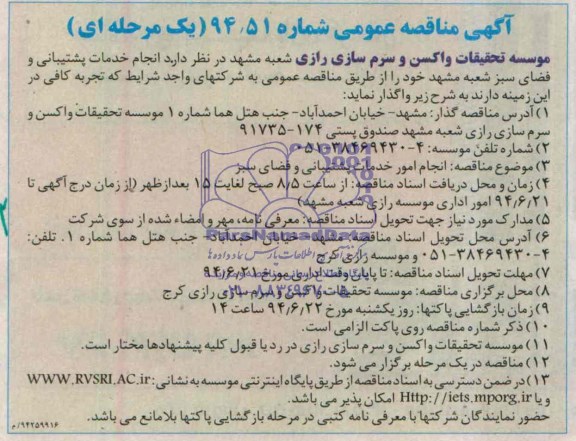 آگهی مناقصه عمومی شماره ۹۴/۵۱ (یک مرحله ای)
موسسه تحقیقات واکسن و سرم سازی رازی شعبه مشهد در نظر دارد انجام خدمات پشتیبانی و
فضای سبز شعبه مشهد خود را از طریق مناقصه عمومی به شرکتهای واجد شرایط که تجربه کافی در
این زمینه دارند به شرح زیر واگذار نماید:
۱) آدرس مناقصه گذار: مشهد- خیابان احمدآباد- جنب هتل هما شماره ۱ موسسه تحقیقات واکسن و
سرم سازی رازی شعبه مشهد صندوق پستی ۱۷۴-۹۱۷۳۵
۲) شماره تلفن موسسه: ۴-۳۸۴۶۹۴۳۰-۰۵۱
۳) موضوع مناقصه: انجام امور خدمات پشتیبانی و فضای سبز
۴) زمان و محل دریافت اسناد مناقصه: از ساعت ۸/۵ صبح لغایت ۱۵ بعدازظهر (از زمان درج آگهی تا
۹۴/۶/۲۱ امور اداری موسسه رازی شعبه مشهد)
۵) مدارک مورد نیاز جهت تحویل اسناد مناقصه: معرفی نامه، مهر و امضاء شده از سوی شرکت
۶) آدرس محل تحویل اسناد مناقصه: مشهد- خیابان احمدآباد- جنب هتل هما شماره ۱. تلفن:
۴-۳۸۴۶۹۴۳۰-۰۵۱ و موسسه رازی کرج
۷) مهلت تحویل اسناد مناقصه: تا پایان وقت اداری مورخ ۹۴/۶/۲۱
۸) محل برگزاری مناقصه: موسسه تحقیقات واکسن و سرم سازی رازی کرج
۹) زمان بازگشایی پاکتها: روز یکشنبه مورخ ۹۴/۶/۲۲ ساعت ۱۴
۱۰) ذکر شماره مناقصه روی پاکت الزامی است.
۱۱) موسسه تحقیقات واکسن و سرم سازی رازی در رد یا قبول کلیه پیشنهادها مختار است.
۱۲) مناقصه در یک مرحله برگزار می شود.
۱۳) در ضمن دسترسی به اسناد مناقصه از طریق پایگاه اینترنتی موسسه به نشانی: WWW.RVSRI.AC.ir
و یا Http://iets.mporg.ir امکان پذیر می باشد.
حضور نمایندگان شرکتها با معرفی نامه کتبی در مرحله بازگشایی پاکتها بلامانع می باشد.
۹۴۲۵۹۹۱۶/م